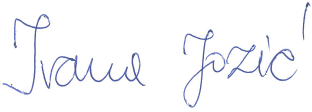 Ivana Jozić